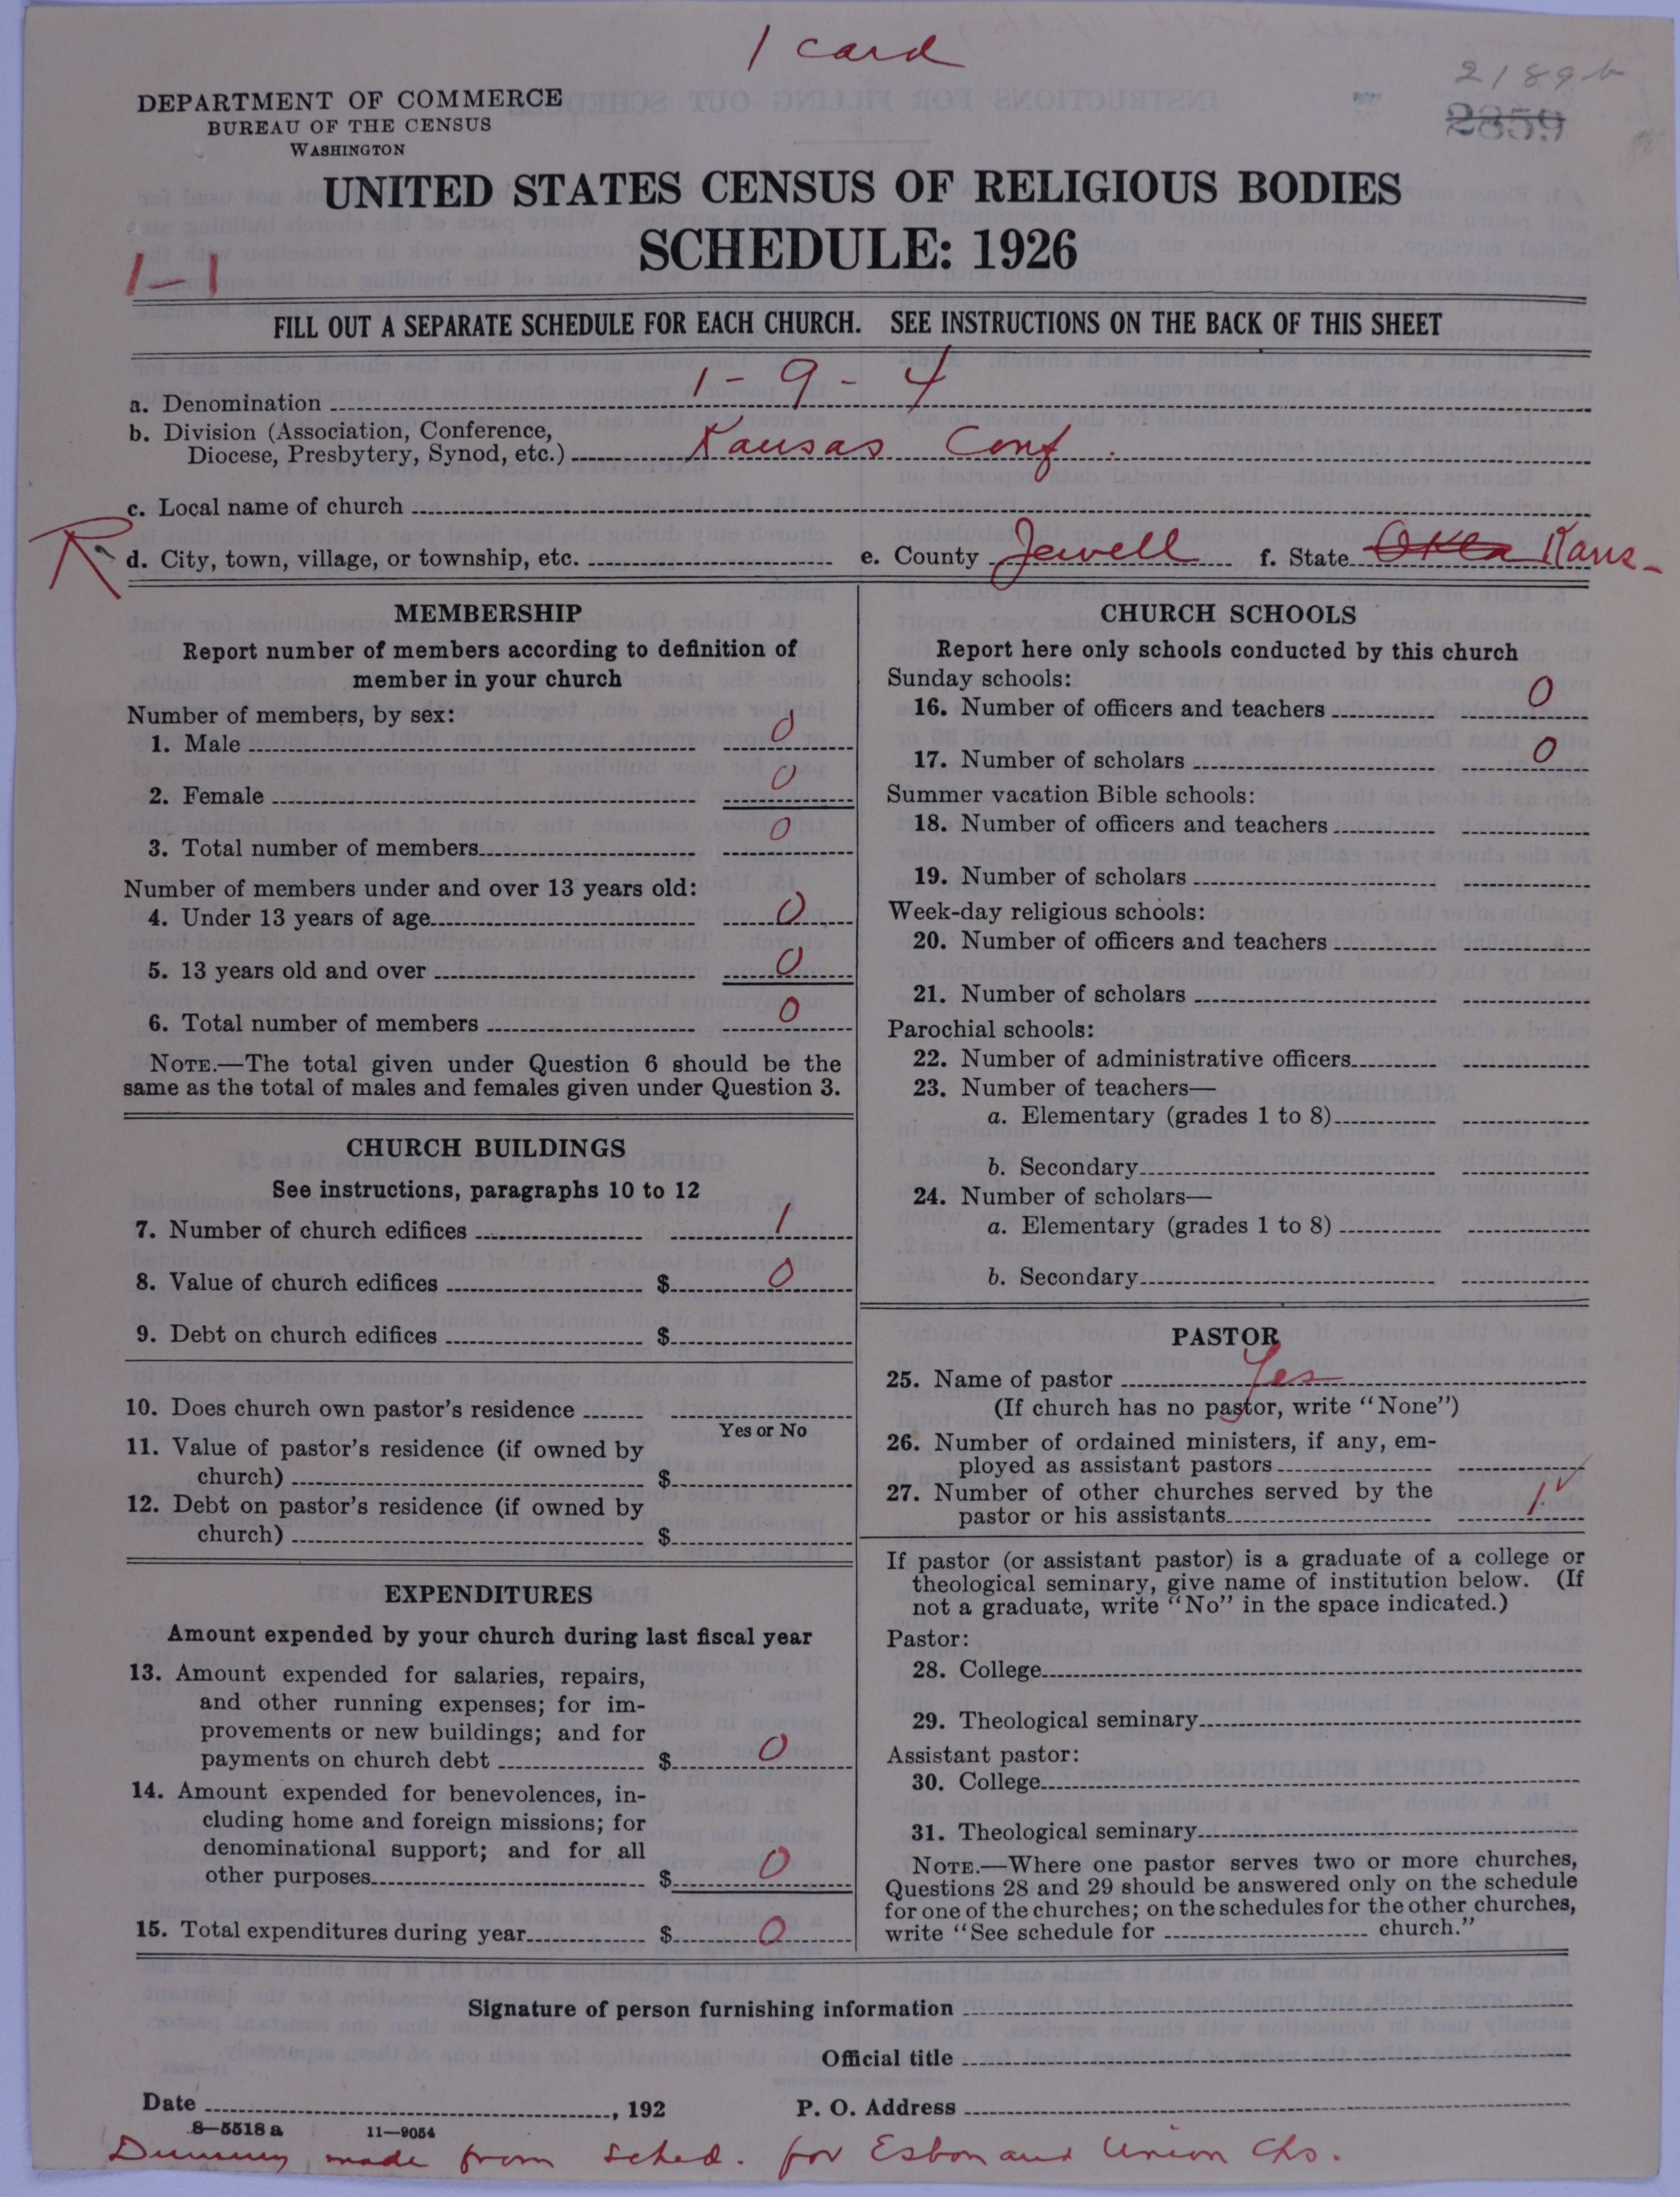 1 card
2189b
2859
DEPARTMENT OF COMMERCE
BUREAU OF THE CENSUS
WASHINGTON
UNITED STATES CENSUS OF RELIGIOUS BODIES
SCHEDULE: 1926
1-1
FILL OUT A SEPARATE SCHEDULE FOR EACH CHURCH. SEE INSTRUCTIONS ON THE BACK OF THIS SHEET
a. Denomination 1-9-4
b. Division (Association, Conference,
Diocese, Presbytery, Synod, etc.) Kansas Conf.
c. Local name of church
R
d. City, town, village, or township, etc. e. County Jewell f. State Okla Kans-
MEMBERSHIP
Report number of members according to definition of
member in your church
Number of members, by sex:
1. Male 0
2. Female 0
3. Total number of members 0
Number of members under and over 13 years old:
4. Under 13 years of age 0
5. 13 years old and over 0
6. Total number of members 0
NOTE.—The total given under Question 6 should be the
same as the total of males and females given under Question 3.
CHURCH BUILDINGS
See instructions, paragraphs 10 to 12
7. Number of church edifices 1
8. Value of church edifices $ 0
9. Debt on church edifices $
10. Does church own pastor's residence
Yes or No
11. Value of pastor's residence (if owned by
church) $
12. Debt on pastor's residence (if owned by
church) $
EXPENDITURES
Amount expended by your church during last fiscal year
13. Amount expended for salaries, repairs,
and other running expenses; for im-
provements or new buildings; and for
payments on church debt $ 0
14. Amount expended for benevolences, in-
cluding home and foreign missions; for
denominational support; and for all
other purposes $ 0
15. Total expenditures during year $ 0
CHURCH SCHOOLS
Report here only schools conducted by this church
Sunday schools:
16. Number of officers and teachers 0
17. Number of scholars 0
Summer vacation Bible schools:
18. Number of officers and teachers
19. Number of scholars
Week-day religious schools:
20. Number of officers and teachers
21. Number of scholars
Parochial schools:
22. Number of administrative officers
23. Number of teachers—
a. Elementary (grades 1 to 8)
b. Secondary
24. Number of scholars—
a. Elementary (grades 1 to 8)
b. Secondary
PASTOR
25. Name of pastor Yes
(If church has no pastor, write "None")
26. Number of ordained ministers, if any, em-
ployed as assistant pastors
27. Number of other churches served by the
pastor or his assistants 1 ✓
If pastor (or assistant pastor) is a graduate of a college or
theological seminary, give name of institution below. (If
not a graduate, write "No" in the space indicated.)
Pastor:
28. College
29. Theological seminary
Assistant pastor:
30. College
31. Theological seminary
NOTE.—Where one pastor serves two or more churches,
Questions 28 and 29 should be answered only on the schedule
for one of the churches; on the schedules for the other churches,
write "See schedule for church."
Signature of person furnishing information
Official title
Date , 192 P. O. Address
8—5518 a 11—9054
Dummy made from sched. for Esbon and Union Chs.